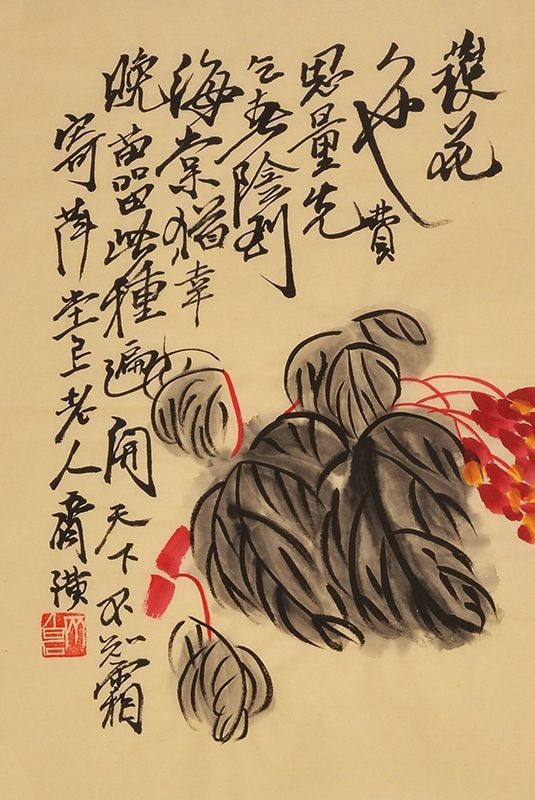 護花
也費
思量先
乞春陰到
海棠猶幸
晚苗留此種遍開天下不知霜
寄萍堂上老人齊璜